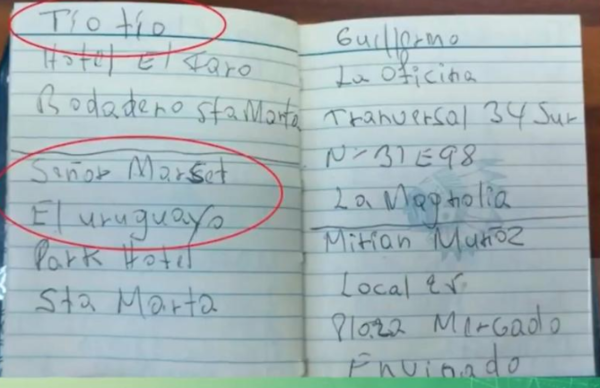 Tío tío
Hotel El Faro
Rodadero Sta Marta
Señor Marset
El uruguayo
Park Hotel
Sta Marta
Guillermo
La Oficina
Tranversal 34 Sur
N- 31E98
La Magnolia
Mirian Muñoz
Local
Plaza Mercado
Envinado